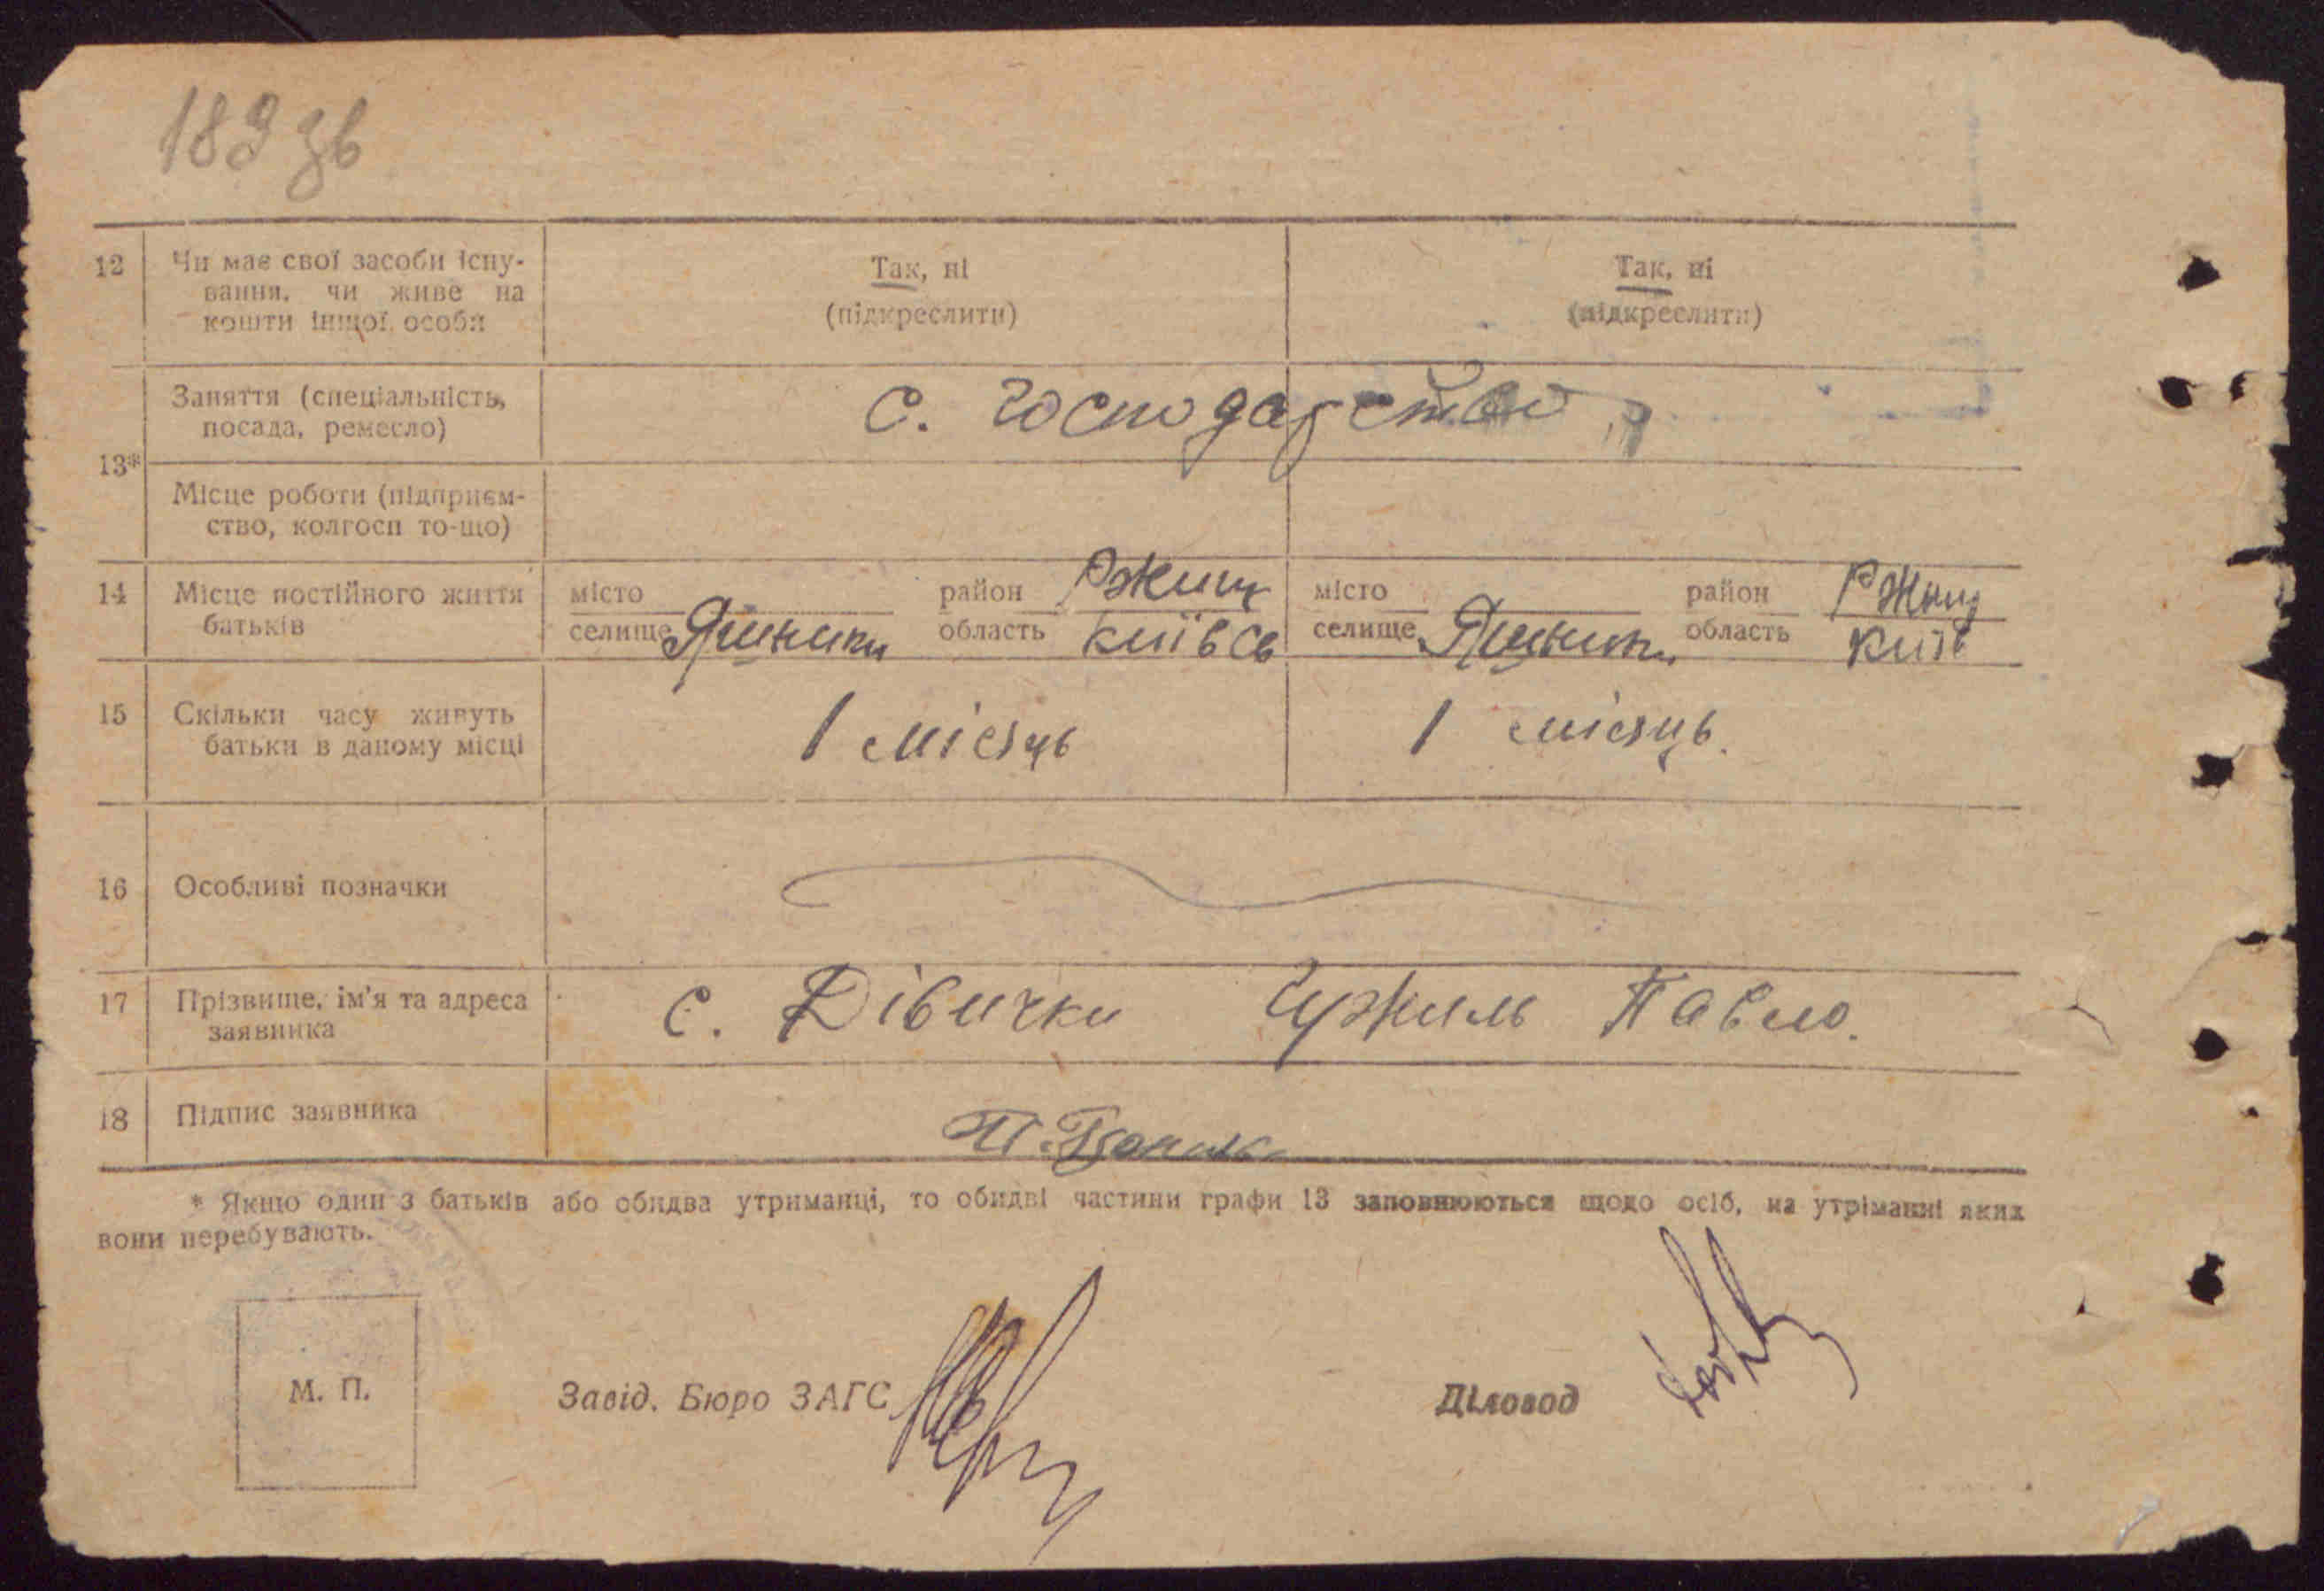 189 зв
12 Чи має свої засоби існу-
вання, чи живе на
кошти іншої особи
Так, ні
(підкреслити)
Так, ні
(підкреслити)
13*
Заняття (спеціальність,
посада, ремесло)
с. господарство
Місце роботи (підприєм-
ство, колгосп то-що)
14 Місце постійного життя
батьків
місто
селище Яшники
район Ржищ
область Київсь
місто
селище Яшники
район Ржищ
область Київ
15 Скільки часу живуть
батьки в даному місці
1 місяць
1 місяць.
16 Особливі позначки
17 Прізвище, ім'я та адреса
заявника
с. Дівички Чужиль Павло.
18 Підпис заявника
П.
* Якщо один з батьків або обидва утриманці, то обидві частини графи 13 заповнюються щодо осіб, на утріманні яких
вони перебувають.
М. П.
Завід. Бюро ЗАГС
Діловод